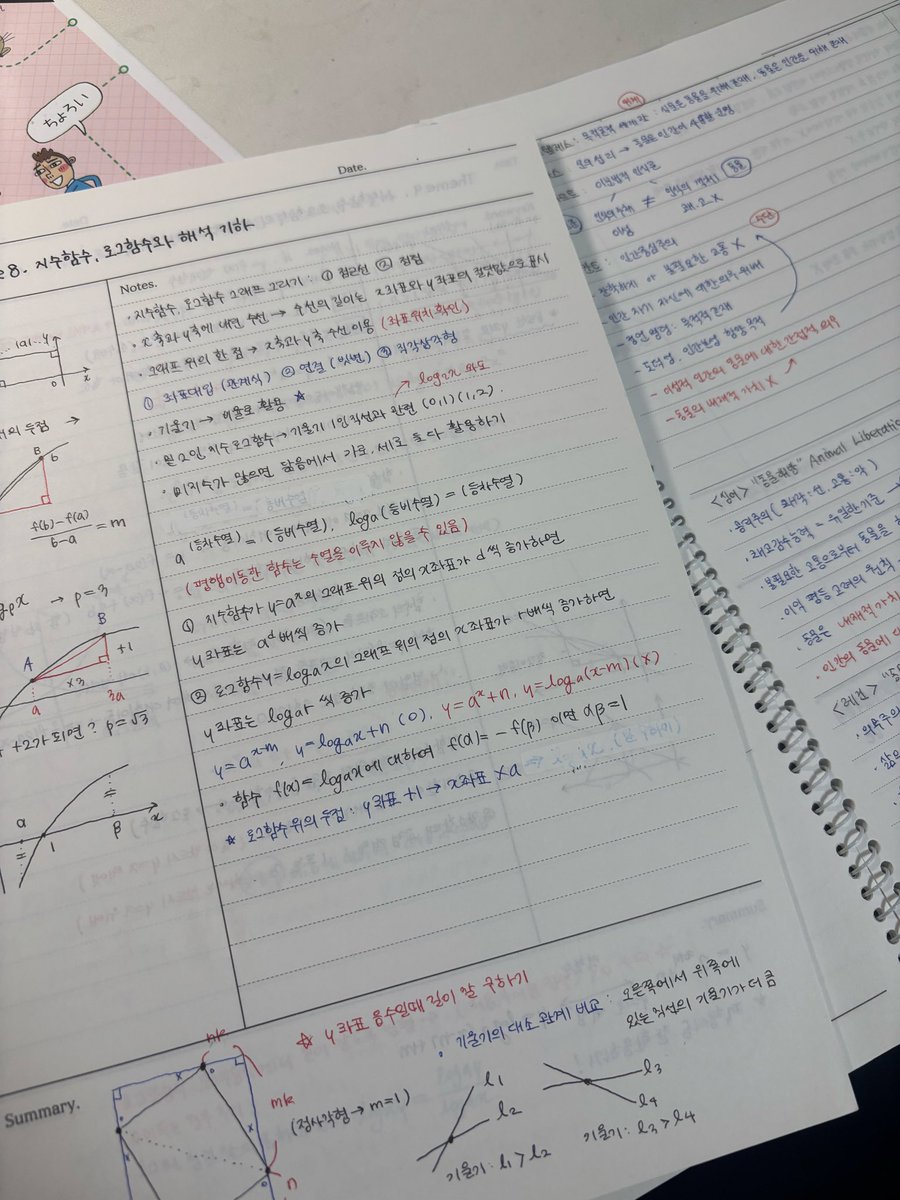 ちょろい
Date.
8. 지수함수, 로그함수와 해석 기하
Notes.
· 지수함수, 로그함수 그래프 그리기 : ① 점근선 ② 점점
· x축과 y축에 내린 수선 → 수선의 길이는 x좌표와 y좌표의 절댓값으로 표시
· 그래프 위의 한 점 → x축과 y축 수선 이용 (좌표위치 확인)
① 좌표대입 (관계식) ② 연결 (빗변) ③ 직각삼각형
· 기울기 → 비율로 활용 ★
· 밑 2인 지수로그함수 → 기울기 1인 직선과 관련 (0,1)(1,2)
→ log2x 와도
· 미지수가 많으면 닮음에서 가로, 세로 둘 다 활용하기
a^(등차수열) = (등비수열), loga(등비수열) = (등차수열)
(평행이동한 함수는 수열을 이루지 않을 수 있음)
① 지수함수가 y=a^x의 그래프 위의 점의 x좌표가 d씩 증가하면
y좌표는 a^d 배씩 증가
② 로그함수 y=logax의 그래프 위의 점의 x좌표가 r배씩 증가하면
y좌표는 logar 씩 증가
y=a^(x-m), y=logax+n (O), y=a^x+n, y=loga(x-m) (X)
· 함수 f(x)=logax에 대하여 f(α)=-f(β) 이면 αβ=1
★ 로그함수 위의 두점 : y좌표 +1 → x좌표 ×a
|a| y
0 x
의 두점 →
B
b
f(b)-f(a)
b-a
= m
x → p=3
A B
+1
×3
a 3a
+2가 되면? p=√3
α 1 β x
Summary.
☆ y좌표 음수일때 길이 잘 구하기
· 기울기의 대소 관계 비교 : 오른쪽에서 위쪽에
있는 직선의 기울기가 더 큼
mk
mk
n
(정사각형 → m=1)
l1
l2
기울기 : l1 > l2
l3
l4
기울기 : l3 > l4
목적론적 세계관 : 식물은 동물을 위해 존재, 동물은 인간을 위해 존재
이분법적 인식론
이성
동물
쾌고 X
: 인간중심주의
- 인간 자기 자신에 대한 의무 위배
- 정언 명령 : 목적적 존재
- 이성적 인간의 동물에 대한 간접적 의무
- 동물의 내재적 가치 X
<싱어> "동물해방" Animal Liberation
· 공리주의 (쾌락:선, 고통:악)
· 쾌고감수능력 = 유일한 기준
· 불필요한 고통으로부터 동물을
· 이익 평등 고려의 원칙
· 동물은 내재적 가치
· 인간의 동물에 대
<레건> "동